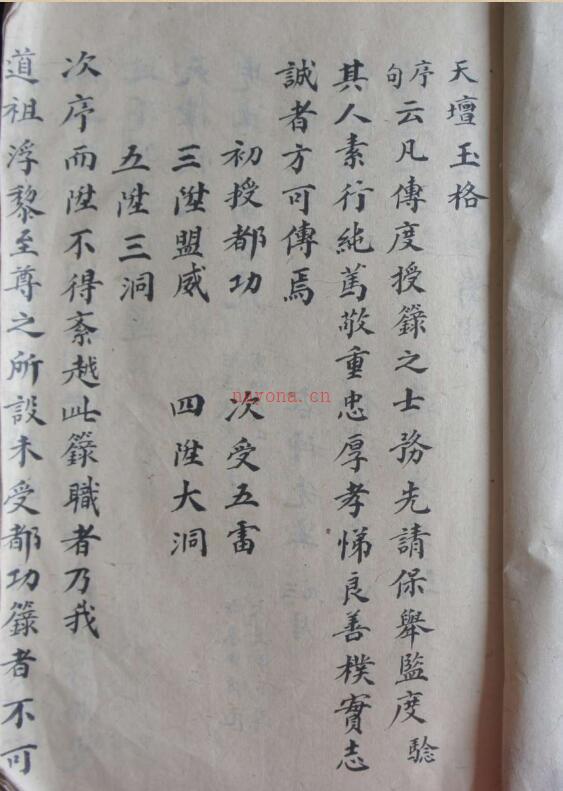 天壇玉格
序句云凡傳度授籙之士務先請保舉監度驗
其人素行純篤敬重忠厚孝悌良善樸實志
誠者方可傳焉
初授都功 次受五雷
三陞盟威 四陞大洞
五陞三洞
次序而陞不得紊越此籙職者乃我
道祖浮黎至尊之所設未受都功籙者不可
nayona.cn